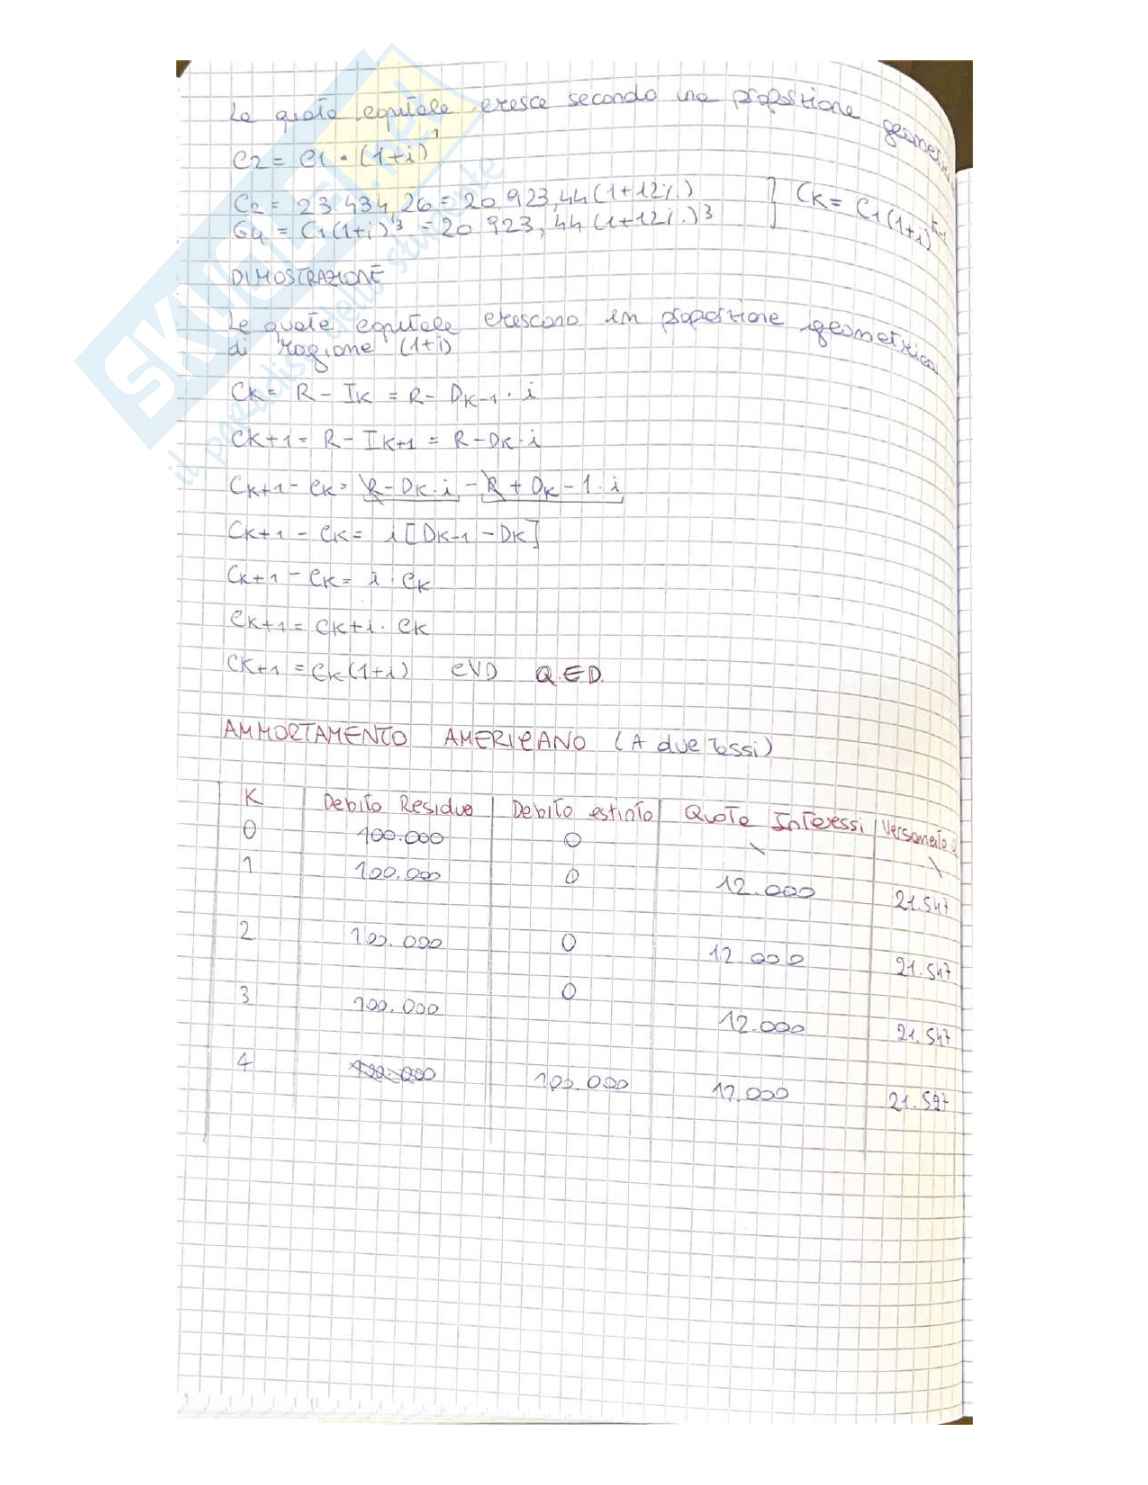 La quota capitale cresce secondo una proporzione geometrica
C2 = C1 · (1+i)^1
C2 = 23.434,26 = 20.923,44 (1+12%)
C4 = C1 (1+i)^3 = 20.923,44 (1+12%)^3 ] CK = C1 (1+i)^K-1
DIMOSTRAZIONE
Le quote capitale crescono in proporzione geometrica
di ragione (1+i)
CK = R - IK = R - DK-1 · i
CK+1 = R - IK+1 = R - DK · i
CK+1 - CK = R - DK · i - R + DK-1 · i
CK+1 - CK = i [DK-1 - DK]
CK+1 - CK = i · CK
CK+1 = CK + i · CK
CK+1 = CK (1+i) CVD Q.E.D.
AMMORTAMENTO AMERICANO (A due tassi)
K Debito Residuo Debito estinto Quote Interessi Versamento
0 100.000 0 \ \
1 100.000 0 12.000 21.547
2 100.000 0 12.000 21.547
3 100.000 0 12.000 21.547
4 100.000 100.000 12.000 21.547
SKUOLA.net
il paradiso dello studente